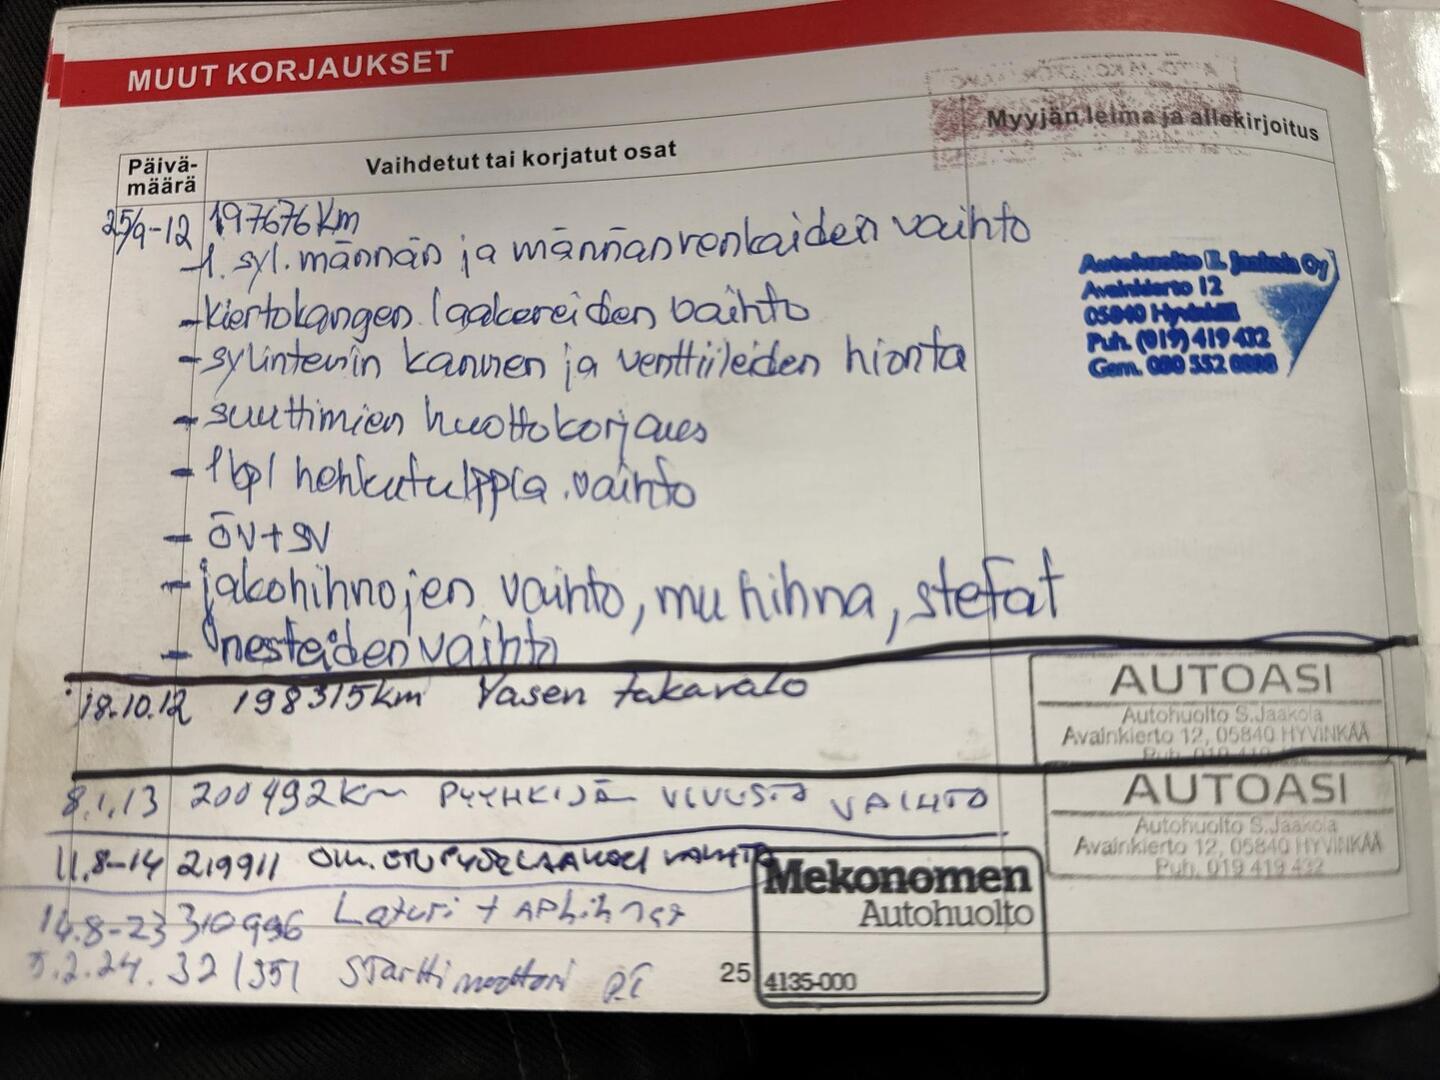 MUUT KORJAUKSET
Päivä-
määrä
Vaihdetut tai korjatut osat
Myyjän leima ja allekirjoitus
25/9-12 197676 Km
-1. syl. männän ja männänrenkaiden vaihto
-kiertokangen laakereiden vaihto
-sylinterin kannen ja venttiileiden hionta
- suuttimien huoltokorjaus
- 1 kpl hehkutulppia vaihto
- ÖV+SV
- jakohihnojen vaihto, mu hihna, stefat
- nesteiden vaihto
Autohuolto E. Jaakola Oy
Avainkierto 12
05840 Hyvinkää
Puh. (019) 419 432
Gsm.
18.10.12 198315km Vasen takavalo
AUTOASI
Autohuolto S.Jaakola
Avainkierto 12, 05840 HYVINKÄÄ
Puh. 019 419
8.1.13 200492km PYYHKIJÄN VIVUSTO VAIHTO
AUTOASI
Autohuolto S.Jaakola
Avainkierto 12, 05840 HYVINKÄÄ
Puh. 019 419 432
11.8-14 219911 Oik. ETUPYÖRLAAKERI VAIHTO
Mekonomen
Autohuolto
4135-000
14.8-23 310996 Laturi + APhihnat
5.2.24. 321351 Starttimoottori
25